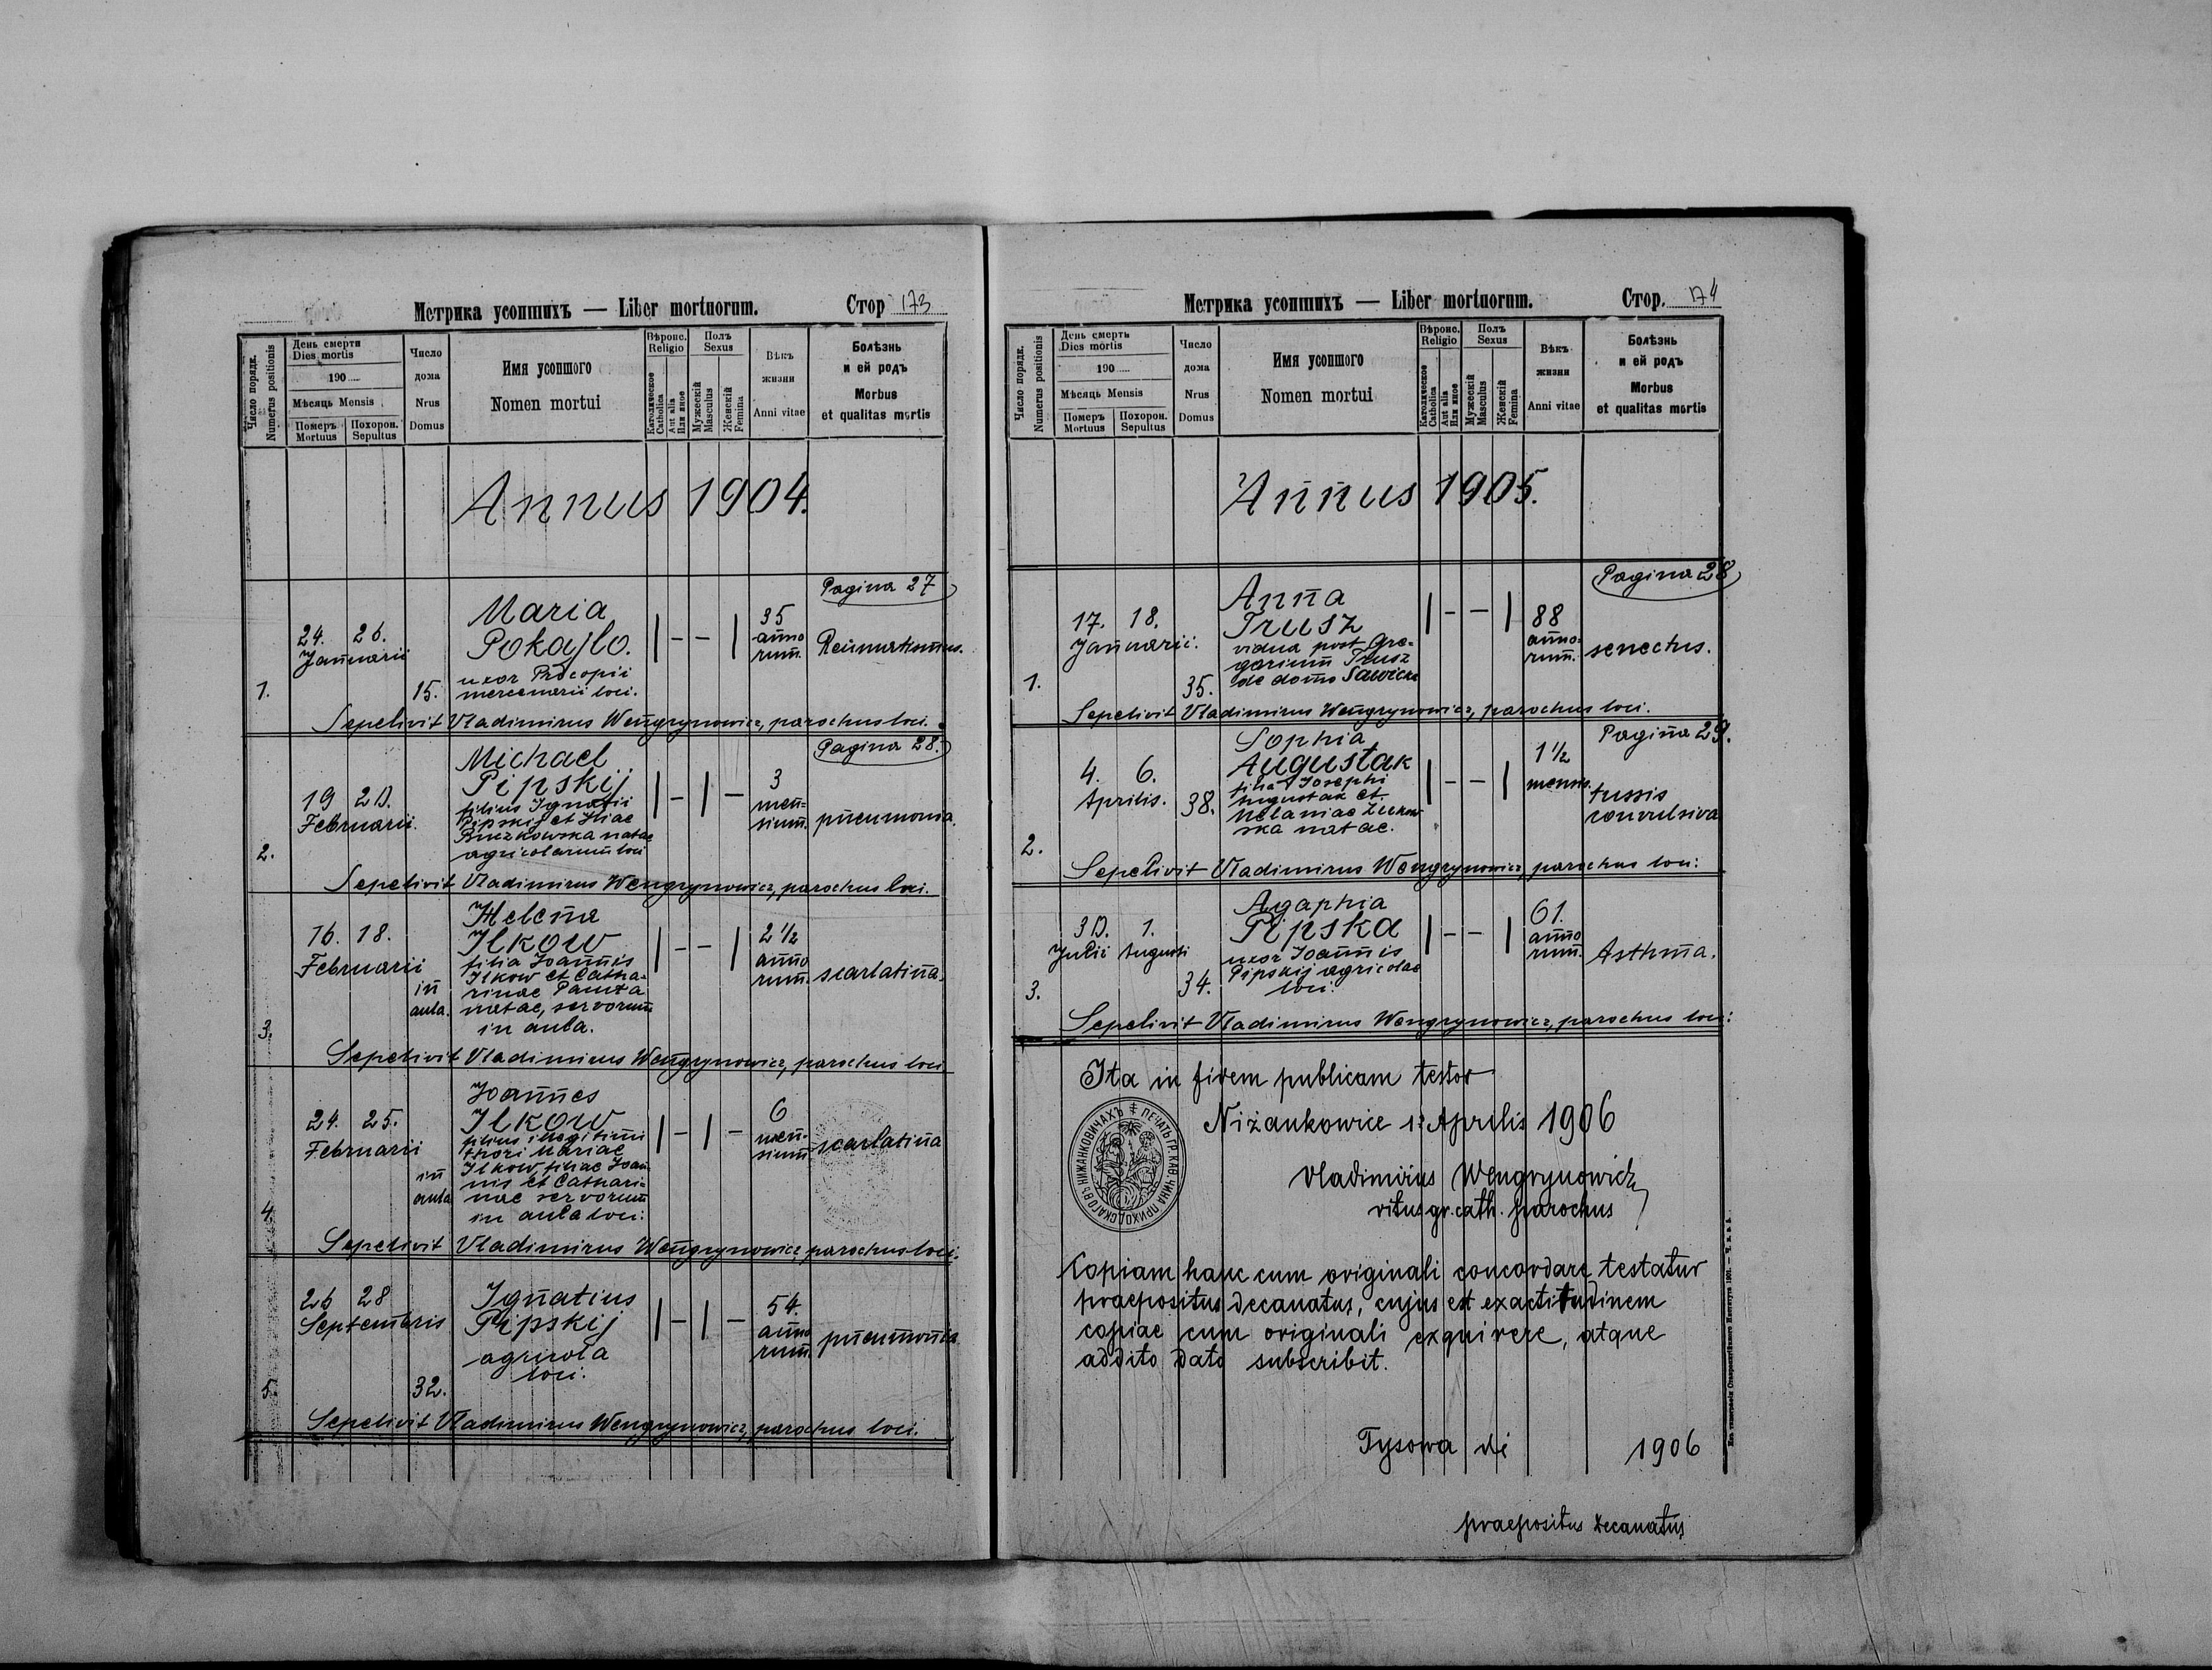 Метрика усопшихъ — Liber mortuorum. Стор 173
Число порядк. Numerus positionis
День смерти Dies mortis
190
Мѣсяць Mensis
Померъ Mortuus
Похорон. Sepultus
Число дома Nrus Domus
Имя усопшого Nomen mortui
Вѣроис. Religio
Католическое Catholica
Aut alia Или иное
Полъ Sexus
Мужескій Masculus
Женскій Femina
Вѣкъ жизни Anni vitae
Болѣзнь и ей родъ Morbus et qualitas mortis
Annus 1904.
Pagina 27
1. 24. 26. Januarii 15.
Maria
Pokajlo.
uxor Procopii
mercenarii loci.
| - - | 35 anno rum. Reumatismus.
Sepelivit Vladimirus Wengrynowicz, parochus loci.
Pagina 28.
2. 19 20. Februarii.
Michael
Pipskij
filius Ignatii
Pipskij et Iliae
Bruzkowska natae
agricolarum loci
| - | - 3 men= sium. pneumonia.
Sepelivit Vladimirus Wengrynowicz, parochus loci.
3. 16. 18. Februarii in aula.
Helena
Ilkow
filia Joannis
Ilkow et Catha-
rinae Pauza
natae, servorum
in aula.
| - - | 2 1/2 anno rum. scarlatina.
Sepelivit Vladimirus Wengrynowicz, parochus loci
4. 24. 25. Februarii in aula
Joannes
Ilkow
filius illegitimi
thori Mariae
Ilkow, filiae Joan
nis et Cathari=
nae servorum
in aula loci.
| - | - 6 men- sium scarlatina
Sepelivit Vladimirus Wengrynowicz parochus loci.
5. 26 28 Septembris 32.
Ignatius
Pipskij
agricola
loci.
| - | - 54. anno rum. pneumonia
Sepelivit Vladimirus Wengrynowicz, parochus loci.
Метрика усопшихъ — Liber mortuorum. Стор. 174
Число порядк. Numerus positionis
День смерть Dies mortis
190
Мѣсяць Mensis
Померъ Mortuus
Похорон. Sepultus
Число дома Nrus Domus
Имя усопшого Nomen mortui
Вѣроис. Religio
Католическое Catholica
Aut alia Или иное
Полъ Sexus
Мужескій Masculus
Женскій Femina
Вѣкъ жизни Anni vitae
Болѣзнь и ей родъ Morbus et qualitas mortis
Annus 1905.
Pagina 28
1. 17. 18. Januarii. 35.
Anna
Trusz
vidua post Gre-
gorium Trusz
de domo Sawicka
| - - | 88 anno= rum. senectus.
Sepelivit Vladimirus Wengrynowicz, parochus loci.
Pagina 29.
2. 4. 6. Aprilis. 38.
Sophia
Augustak
filia Josephi
Augustak et
Melaniae Zuckow
ska natae.
| - - | 1 1/2 mensis. tussis convulsiva
Sepelivit Vladimirus Wengrynowicz, parochus loci.
3. 30. 1. Julii Augusti 34.
Agaphia
Pipska
uxor Joannis
Pipskij agricolae
loci.
| - - | 61. anno rum. Asthma.
Sepelivit Vladimirus Wengrynowicz, parochus loci.
Ita in fidem publicam testor
Niżankowice 1. Aprilis 1906
Vladimirus Wengrynowicz
ritus gr. cath. parochus
ПЕЧАТЬ ГР. КАѲ. ЧИНА ПРИХОДСКАГО ВЪ НИЖАНКОВИЧАХЪ
Copiam hanc cum originali concordare testatur
praepositus decanatus, cujus est exactitudinem
copiae cum originali exquirere, atque
addito dato subscribit.
Tysowa die 1906
praepositus decanatus